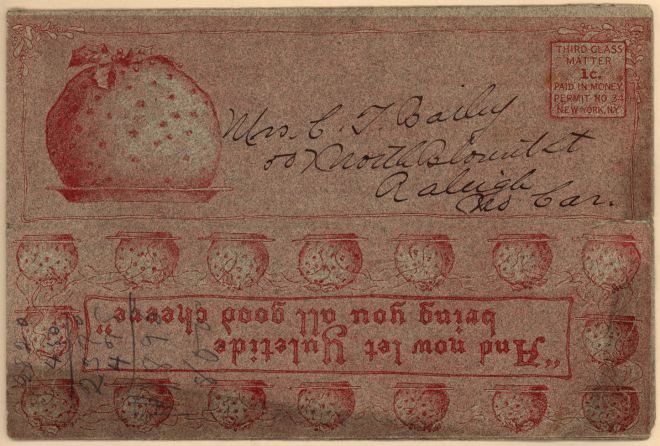 THIRD CLASS
MATTER
1c.
PAID IN MONEY
PERMIT NO 34
NEW YORK, N.Y.
Mrs. C. T. Baily
North Blount St
Raleigh
No Car.
"And now let Yuletide
bring you all good cheere"